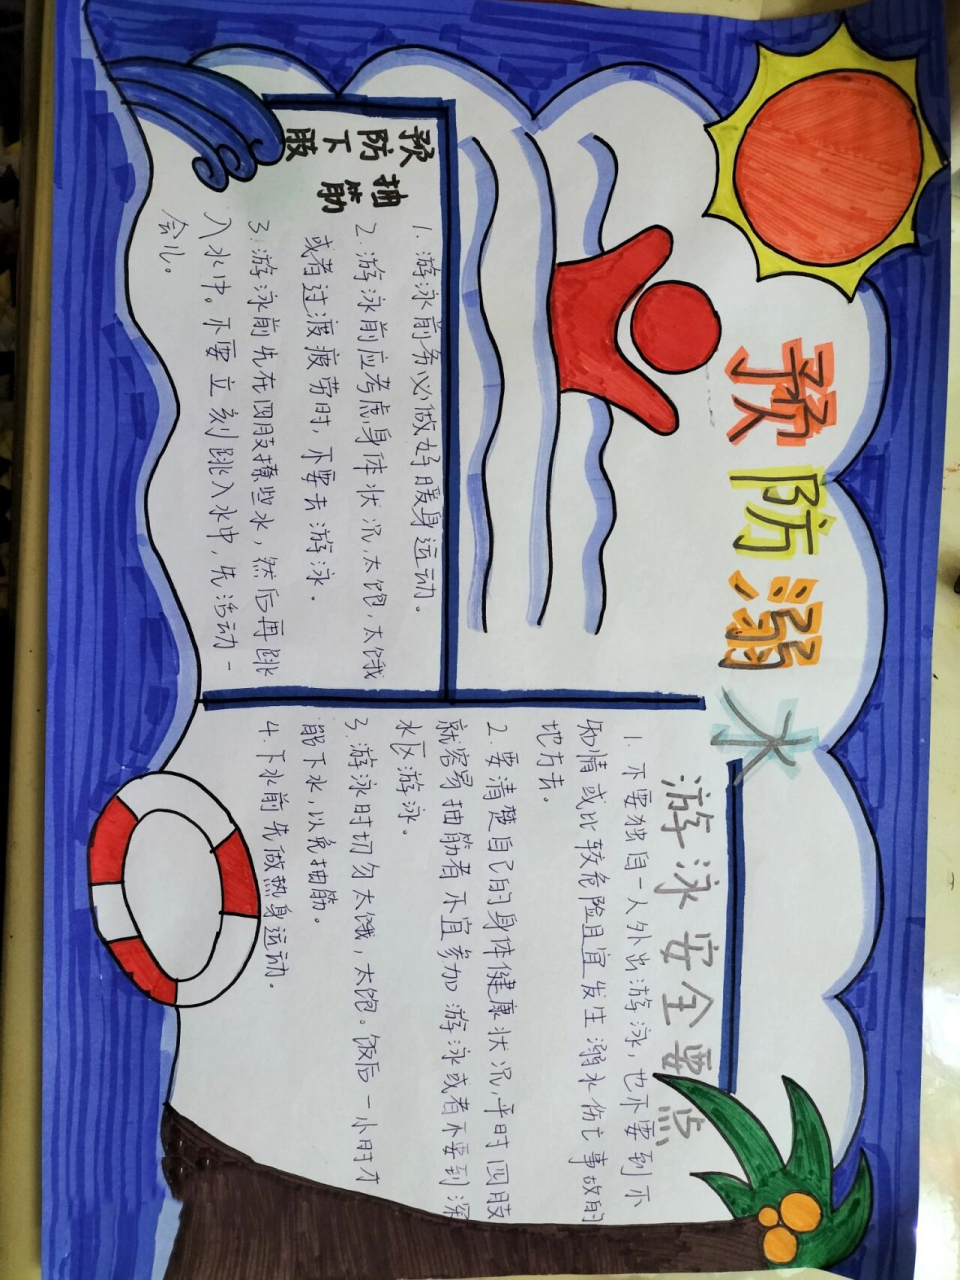 预防溺水
预防下肢
抽筋
1.游泳前务必做好暖身运动。
2.游泳前应考虑身体状况,太饱,太饿
或者过渡疲劳时,不要去游泳。
3.游泳前先在四肢撩些水,然后再跳
入水中。不要立刻跳入水中,先活动一
会儿。
游泳安全要点
1.不要独自一人外出游泳,也不要到不
知情或比较危险且宜发生溺水伤亡事故的
地方去。
2.要清楚自己的身体健康状况,平时四肢
就容易抽筋者不宜参加游泳或者不要到深
水区游泳。
3.游泳时切勿太饿,太饱。饭后一小时才
能下水,以免抽筋。
4.下水前先做热身运动。